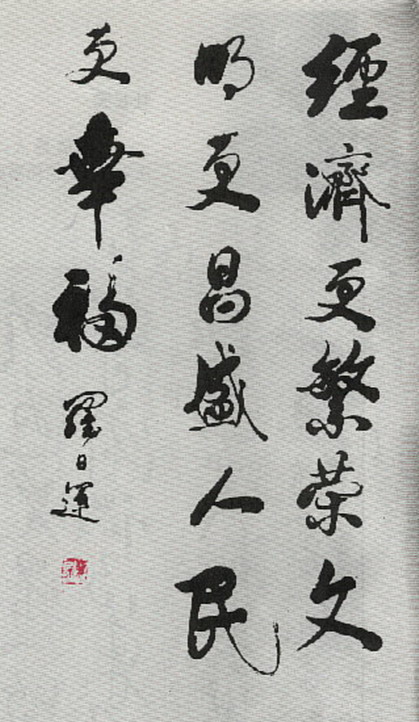 經濟更繁荣文
明更昌盛人民
更幸福 羅日運